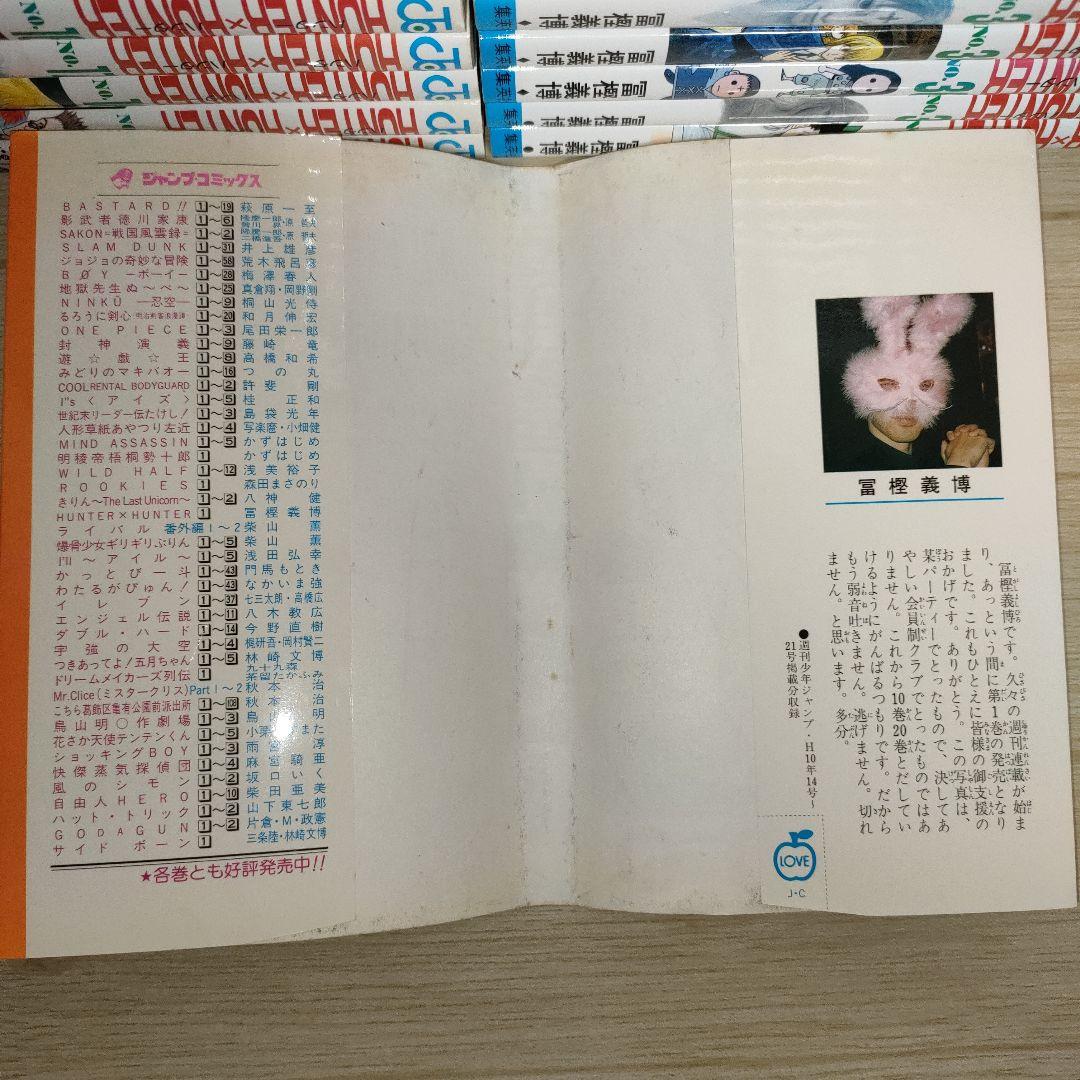 ジャンプ・コミックス
BASTARD!! 1〜19 萩原一至
影武者徳川家康 1〜6 隆慶一郎・原哲夫
SAKON=戦国風雲録= 1〜2
SLAM DUNK 1〜31 井上雄彦
ジョジョの奇妙な冒険 1〜58 荒木飛呂彦
BØY ―ボーイ― 1〜28 梅澤春人
地獄先生ぬ〜べ〜 1〜25 真倉翔・岡野剛
NINKŪ ―忍空― 1〜9 桐山光侍
るろうに剣心 ―明治剣客浪漫譚― 1〜20 和月伸宏
ONE PIECE 1〜3 尾田栄一郎
封神演義 1〜9 藤崎竜
遊☆戯☆王 1〜8 高橋和希
みどりのマキバオー 1〜16 つの丸
COOL RENTAL BODYGUARD 1〜2 許斐剛
I"s〈アイズ〉 1〜5 桂正和
世紀末リーダー伝たけし! 1〜3 島袋光年
人形草紙あやつり左近 1〜4 写楽麿・小畑健
MIND ASSASSIN 1〜5 かずはじめ
明稜帝梧桐勢十郎 1 かずはじめ
WILD HALF 1〜12 浅美裕子
ROOKIES 1 森田まさのり
きりん〜The Last Unicorn〜 1〜2 八神健
HUNTER×HUNTER 1 冨樫義博
ライバル 番外編1〜2 柴山薫
爆骨少女ギリギリぷりん 1〜5 柴山薫
I'll 〜アイル〜 1〜5 浅田弘幸
かっとび一斗 1〜43 門馬もとき
わたるがぴゅん! 1〜43 なかいま強
イレブン 1〜37 七三太朗・高橋広
エンジェル伝説 1〜11 八木教広
ダブル・ハード 1〜14 今野直樹
宇強の大空 1〜4 梶研吾・岡村賢二
つきあってよ!五月ちゃん 1〜5 林崎文博
ドリームメイカーズ列伝 1 九十九森 茶留たかふみ
Mr.Clice(ミスタークリス) Part1〜2 秋本治
こちら葛飾区亀有公園前派出所 1〜108 秋本治
鳥山明○作劇場 1〜3 鳥山明
花さか天使テンテンくん 1〜5
ショッキングBOY 1〜3 雨宮淳
快傑蒸気探偵団 1〜4 麻宮騎亜
風のシモン 1〜2 坂口いく
自由人HERO 1〜10 柴田亜美
ハット・トリック 1〜2 山下東七郎
GODAGUN 1〜2 片倉・M・政憲
サイドボーン 1 三条陸・林崎文博
★各巻とも好評発売中!!
冨樫義博
冨樫義博です。久々の週刊連載が始ま
り、あっという間に第1巻の発売となり
ました。これもひとえに皆様の御支援の
おかげです。ありがとう。この写真は、
某パーティーでとったもので、決してあ
やしい会員制クラブでとったものではあ
りません。これから10巻20巻とだしてい
けるようにがんばるつもりです。だから
もう弱音吐きません。逃げません。切れ
ません。と思います。多分。
●週刊少年ジャンプ・H10年14号〜
21号掲載分収録
LOVE
J・C